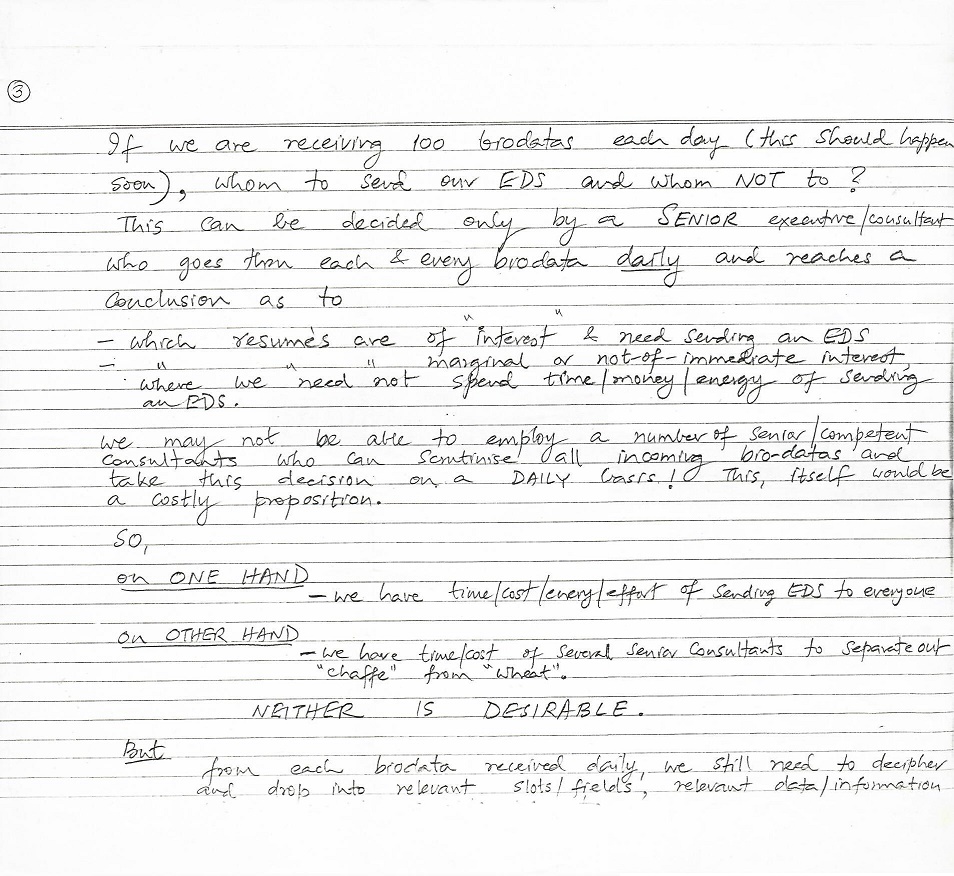 ③
If we are receiving 100 biodatas each day (this should happen
soon), whom to send our EDS and whom NOT to ?
This can be decided only by a SENIOR executive/consultant
who goes thru each & every biodata daily and reaches a
conclusion as to
- which resumes are of "interest" & need sending an EDS
- " " " marginal or not-of-immediate interest,
where we need not spend time/money/energy of sending
an EDS.
we may not be able to employ a number of senior/competent
consultants who can scrutinise all incoming bio-datas and
take this decision on a DAILY basis! This, itself would be
a costly proposition.
SO,
on ONE HAND
- we have time/cost/enery/effort of sending EDS to everyone
on OTHER HAND
- we have time/cost of several senior consultants to separate out
"chaffe" from "wheat".
NEITHER IS DESIRABLE.
But
from each biodata received daily, we still need to decipher
and drop into relevant slots/fields, relevant data/information